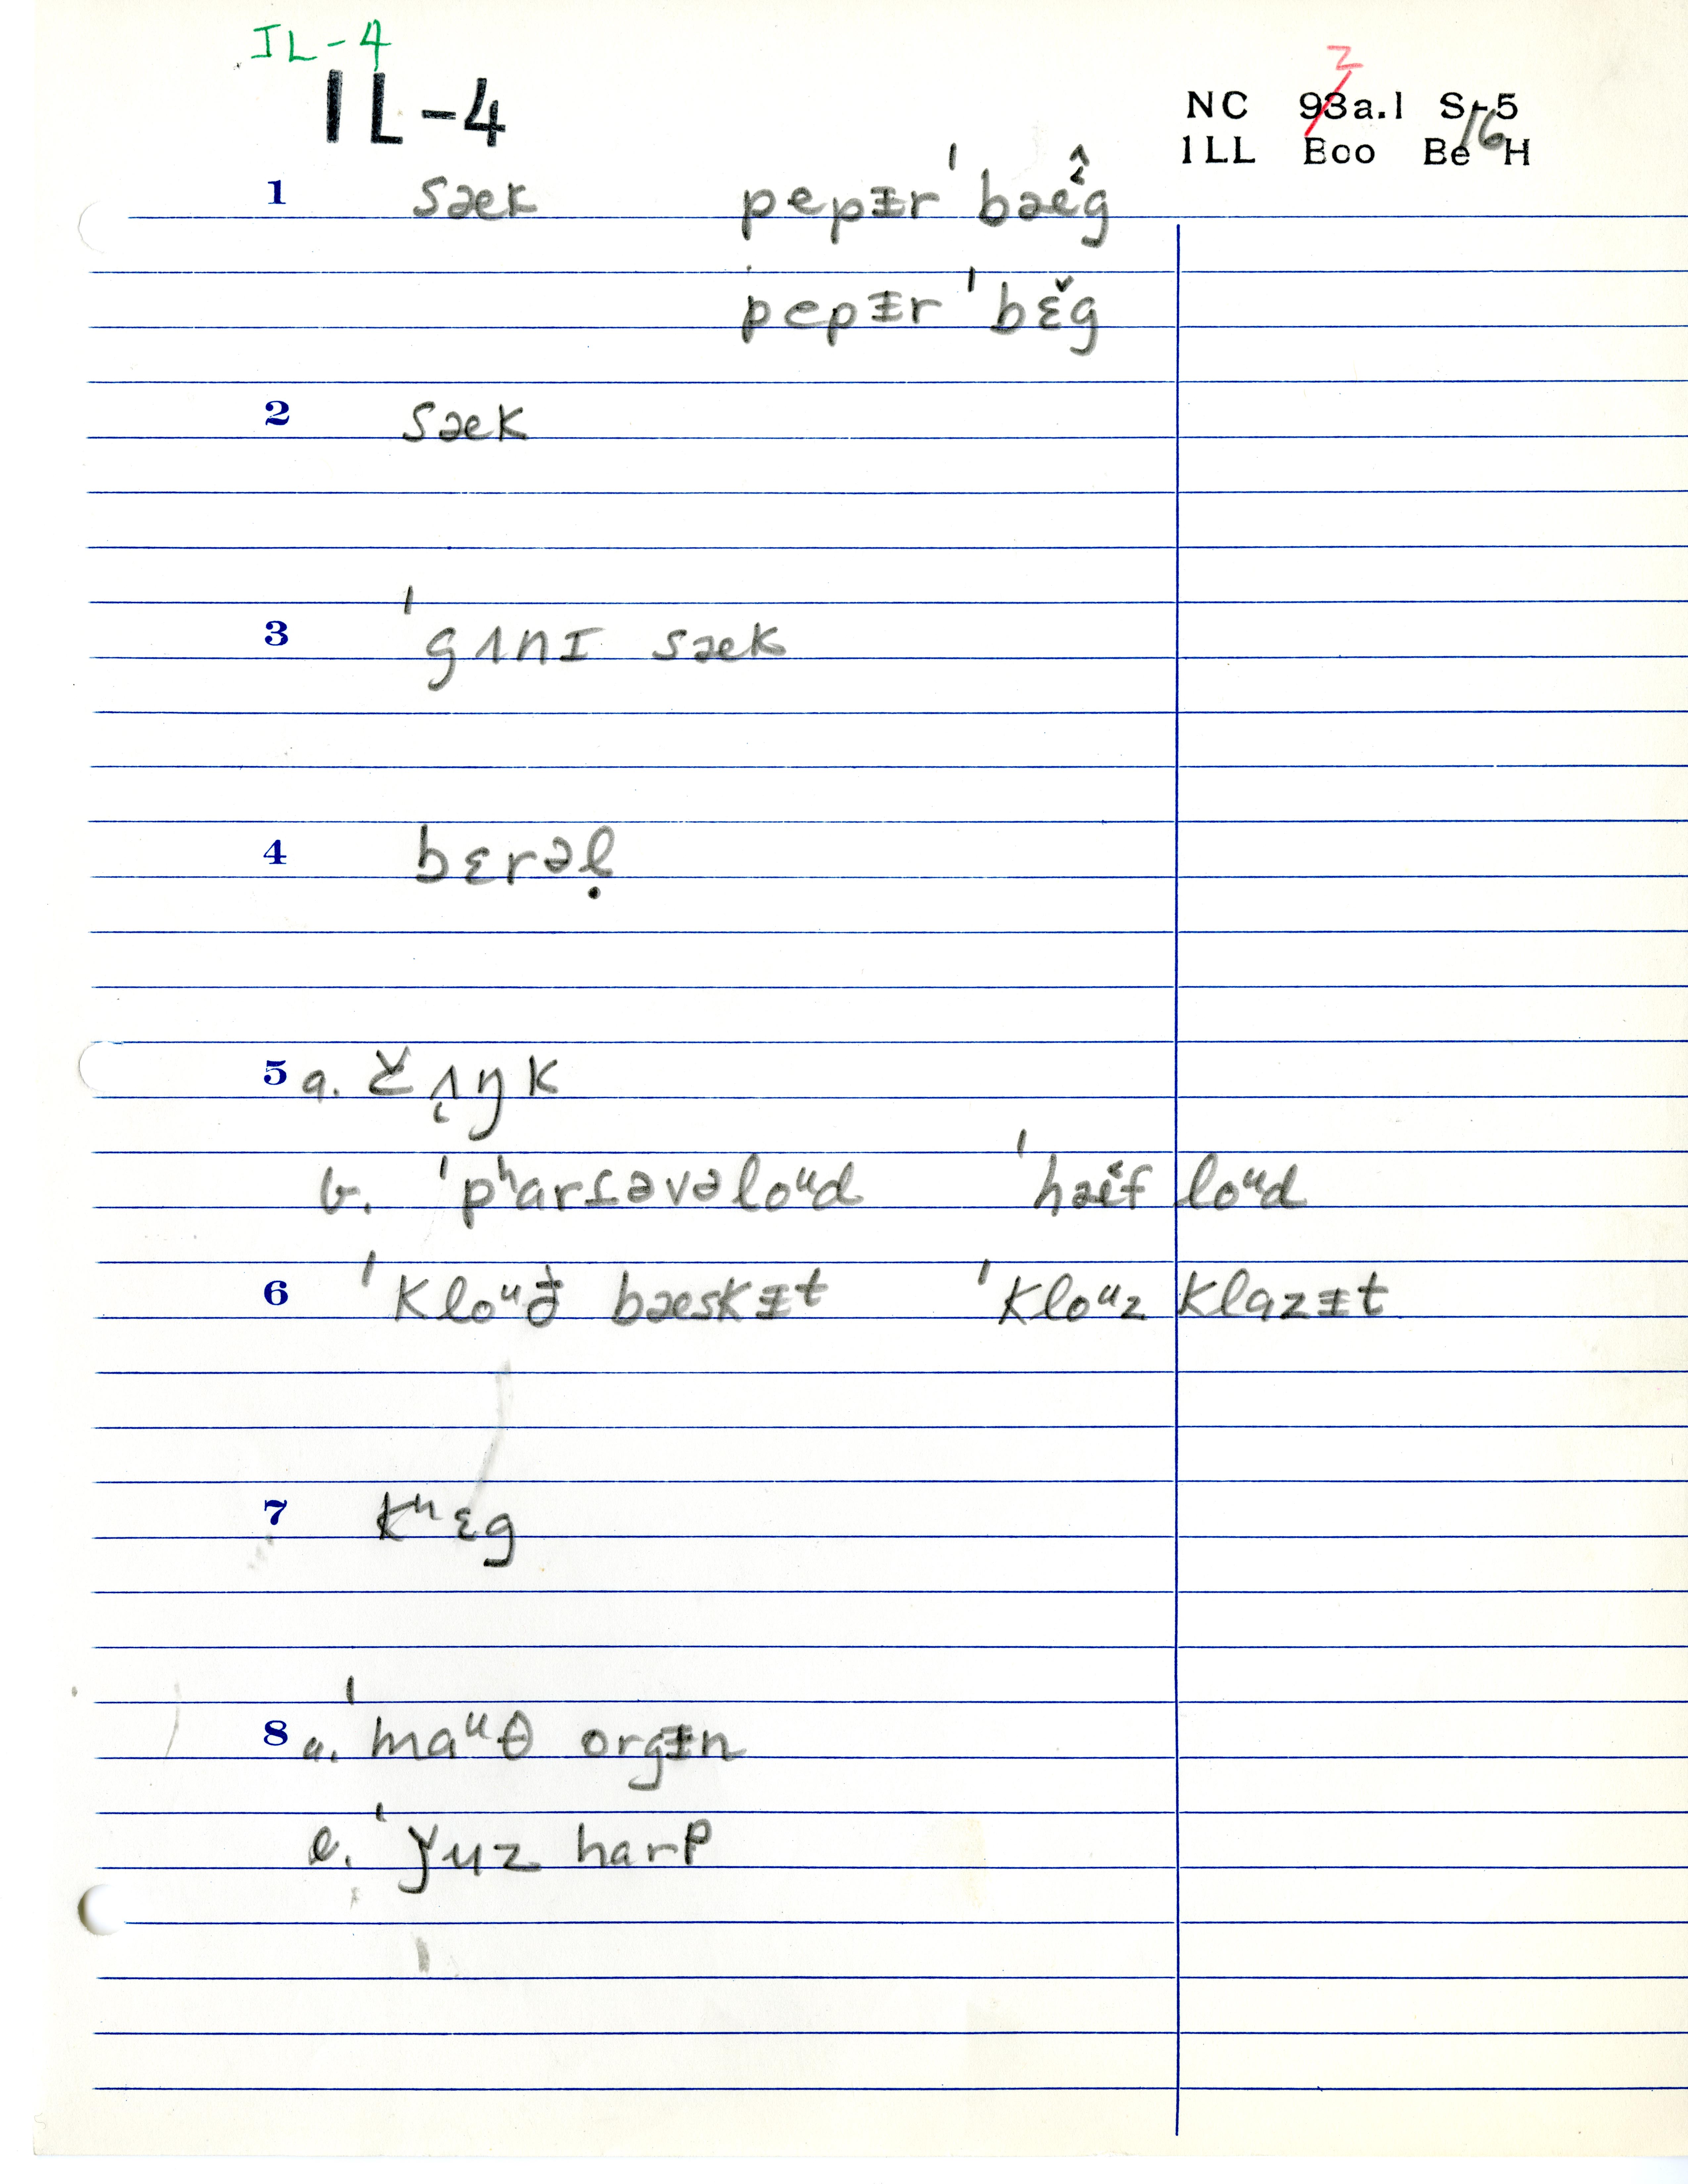 IL-4
IL-4
2
NC 93a.1 S-5
16
ILL Boo Be H
1 sæk pepᵻr ˈbæ̂g
pepᵻr ˈbɛ̌g
2 sæk
3 ˈgʌnɪ sæk
4 bɛrəḷ
5 a. č ʌŋk
b. ˈpʰarʃəvəloᵘd ˈhæf loᵘd
6 ˈkloᵘð bæskᵻt ˈkloᵘz klazᵻt
7 kʰɛg
8 a. ˈmaᵘθ orgᵻn
e. ˈǰuz harp